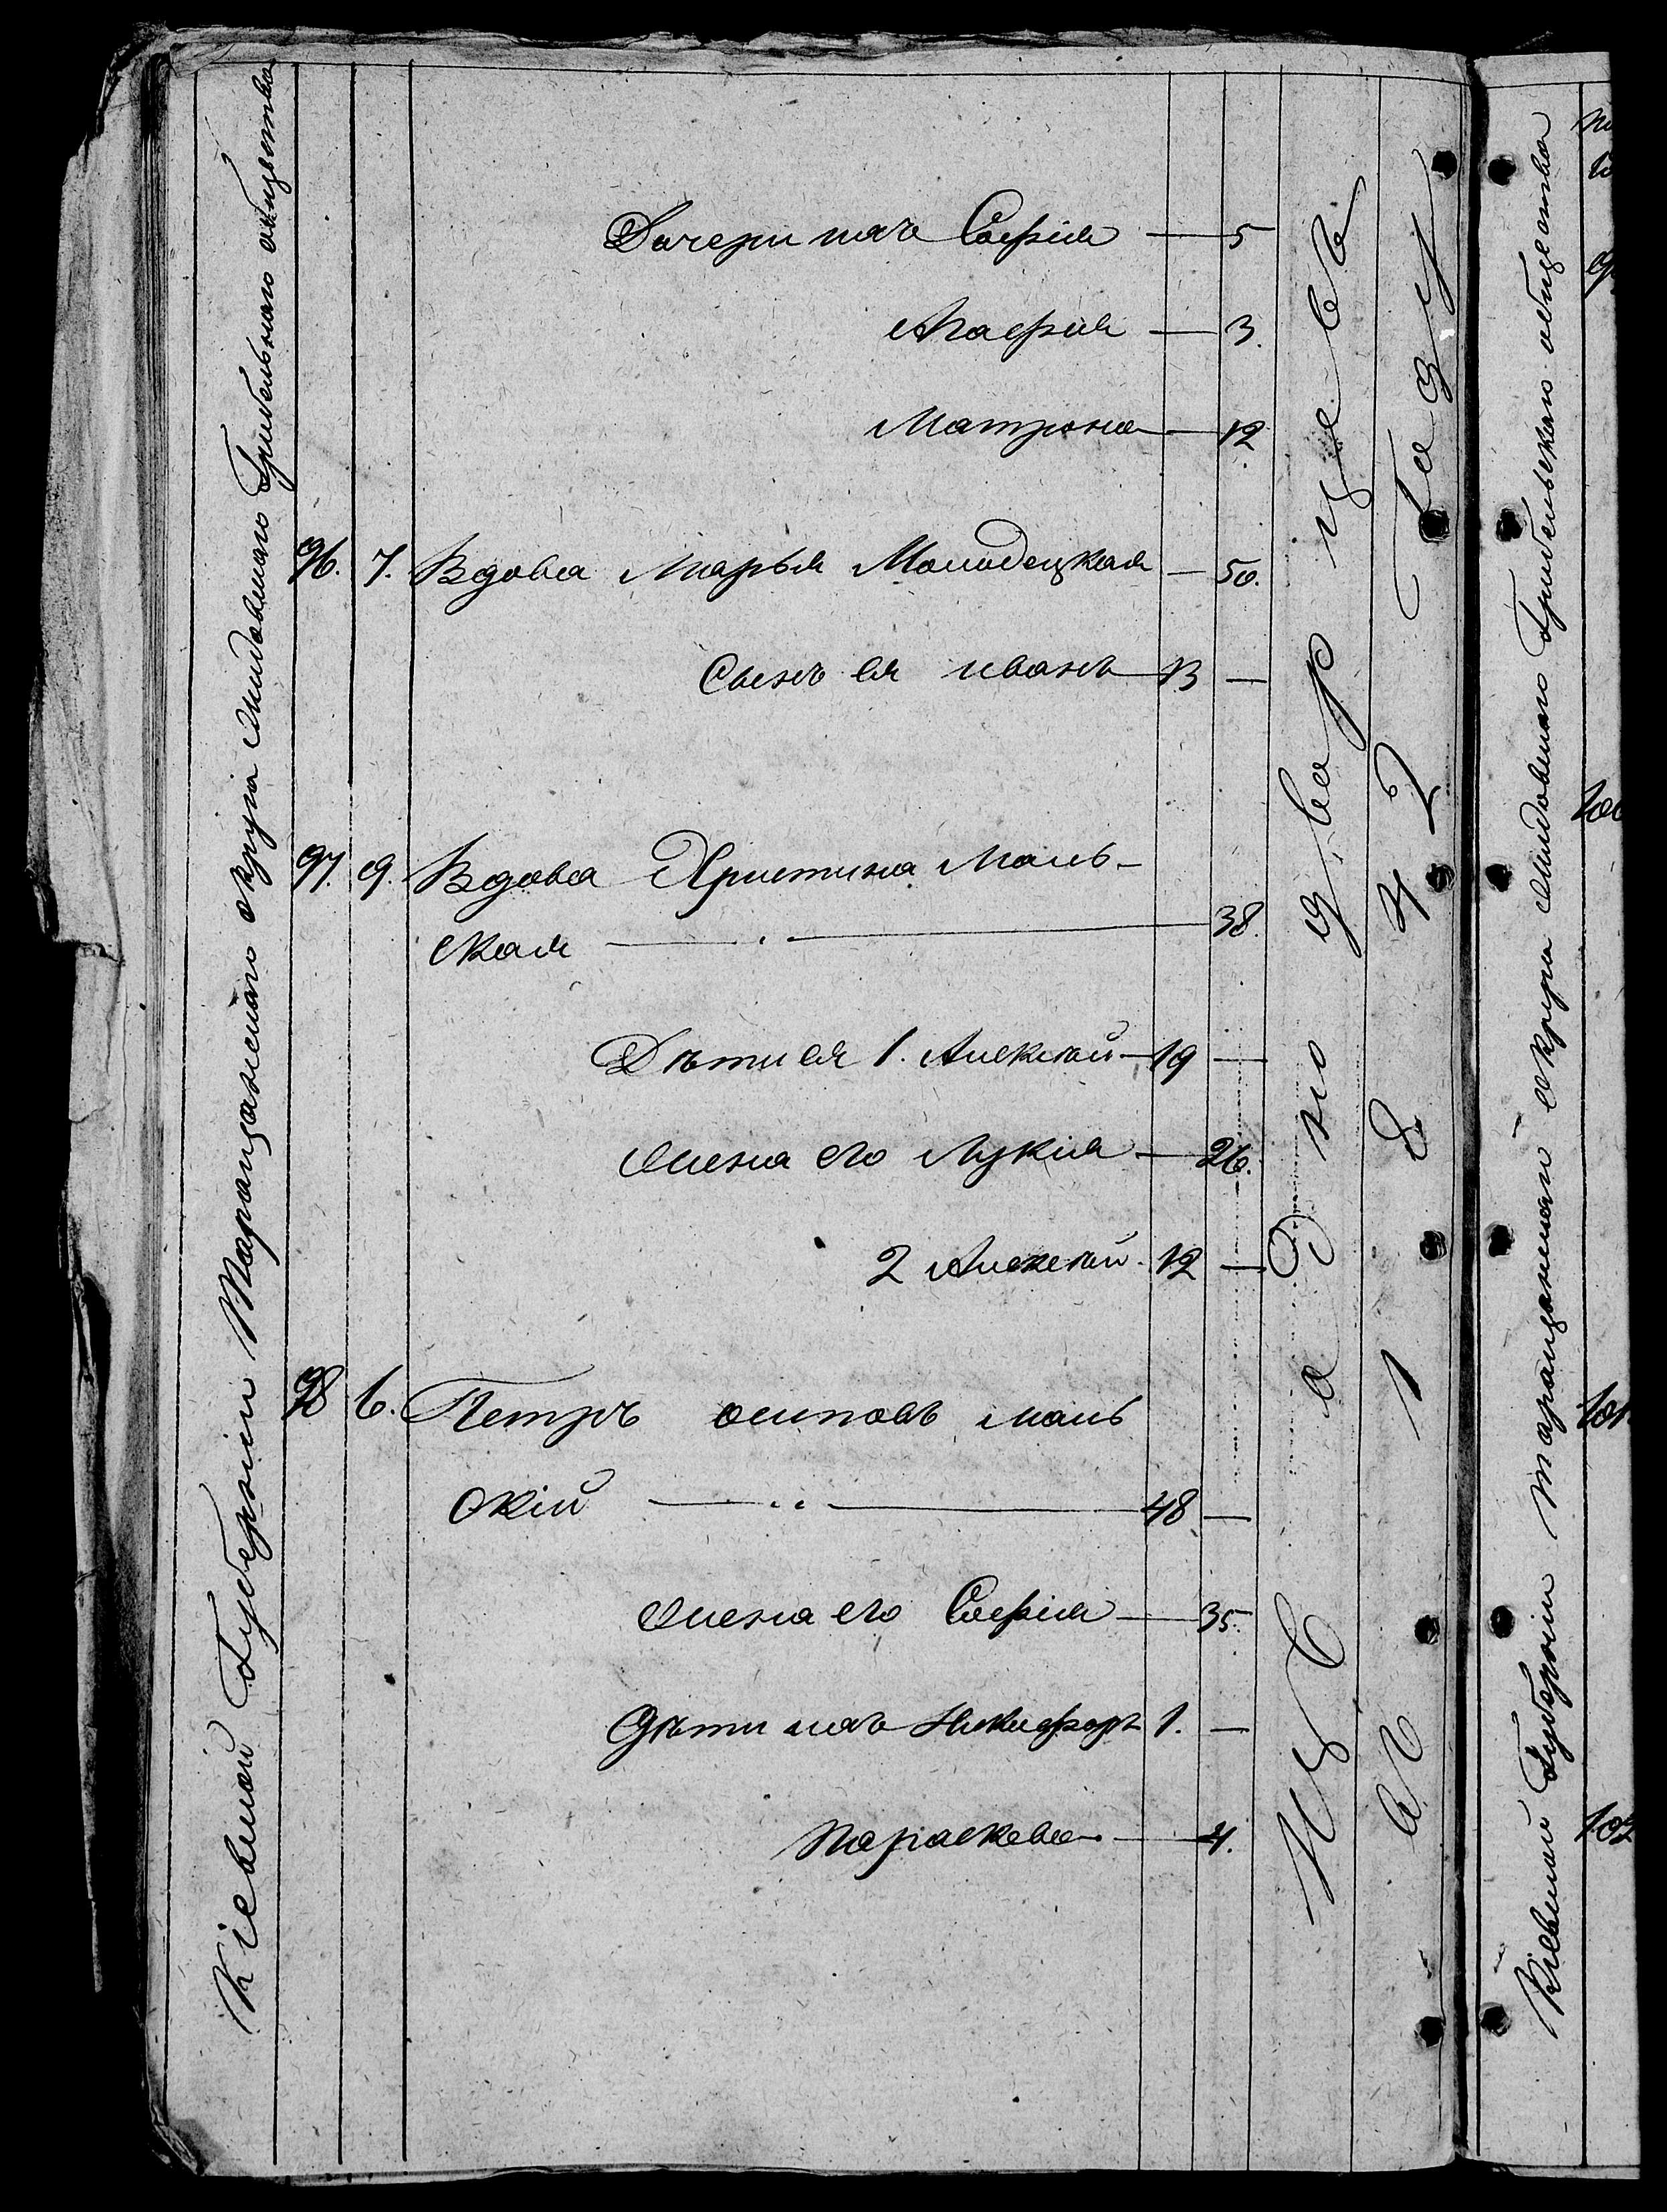 Кіевской Губерніи Таращанскаго округа Жидовскаго Грибельнаго общества
Дочери ихъ Софія — 5
Агафія — 3.
Матрона — 12
96. 7. Вдова Марья Молодецкая — 50.
Сынъ ея иванъ — 13 —
97. 9. Вдова Христина Маль-
ская — 38.
Дѣти ея 1. Алексѣй — 19 —
Жена его Лукія — 26.
2 Алексѣй. 12 —
98 6. Петръ осиповъ маль
скій — 48 —
Жена его Софія — 35.
Дѣти ихъ Никифоръ 1. —
Параскева — 4.
Изъ однодворцевъ
въ 1842 Году
Кіевской Губерніи таращанскаго округа Жидовскаго Грибельскаго общества
100
101
102